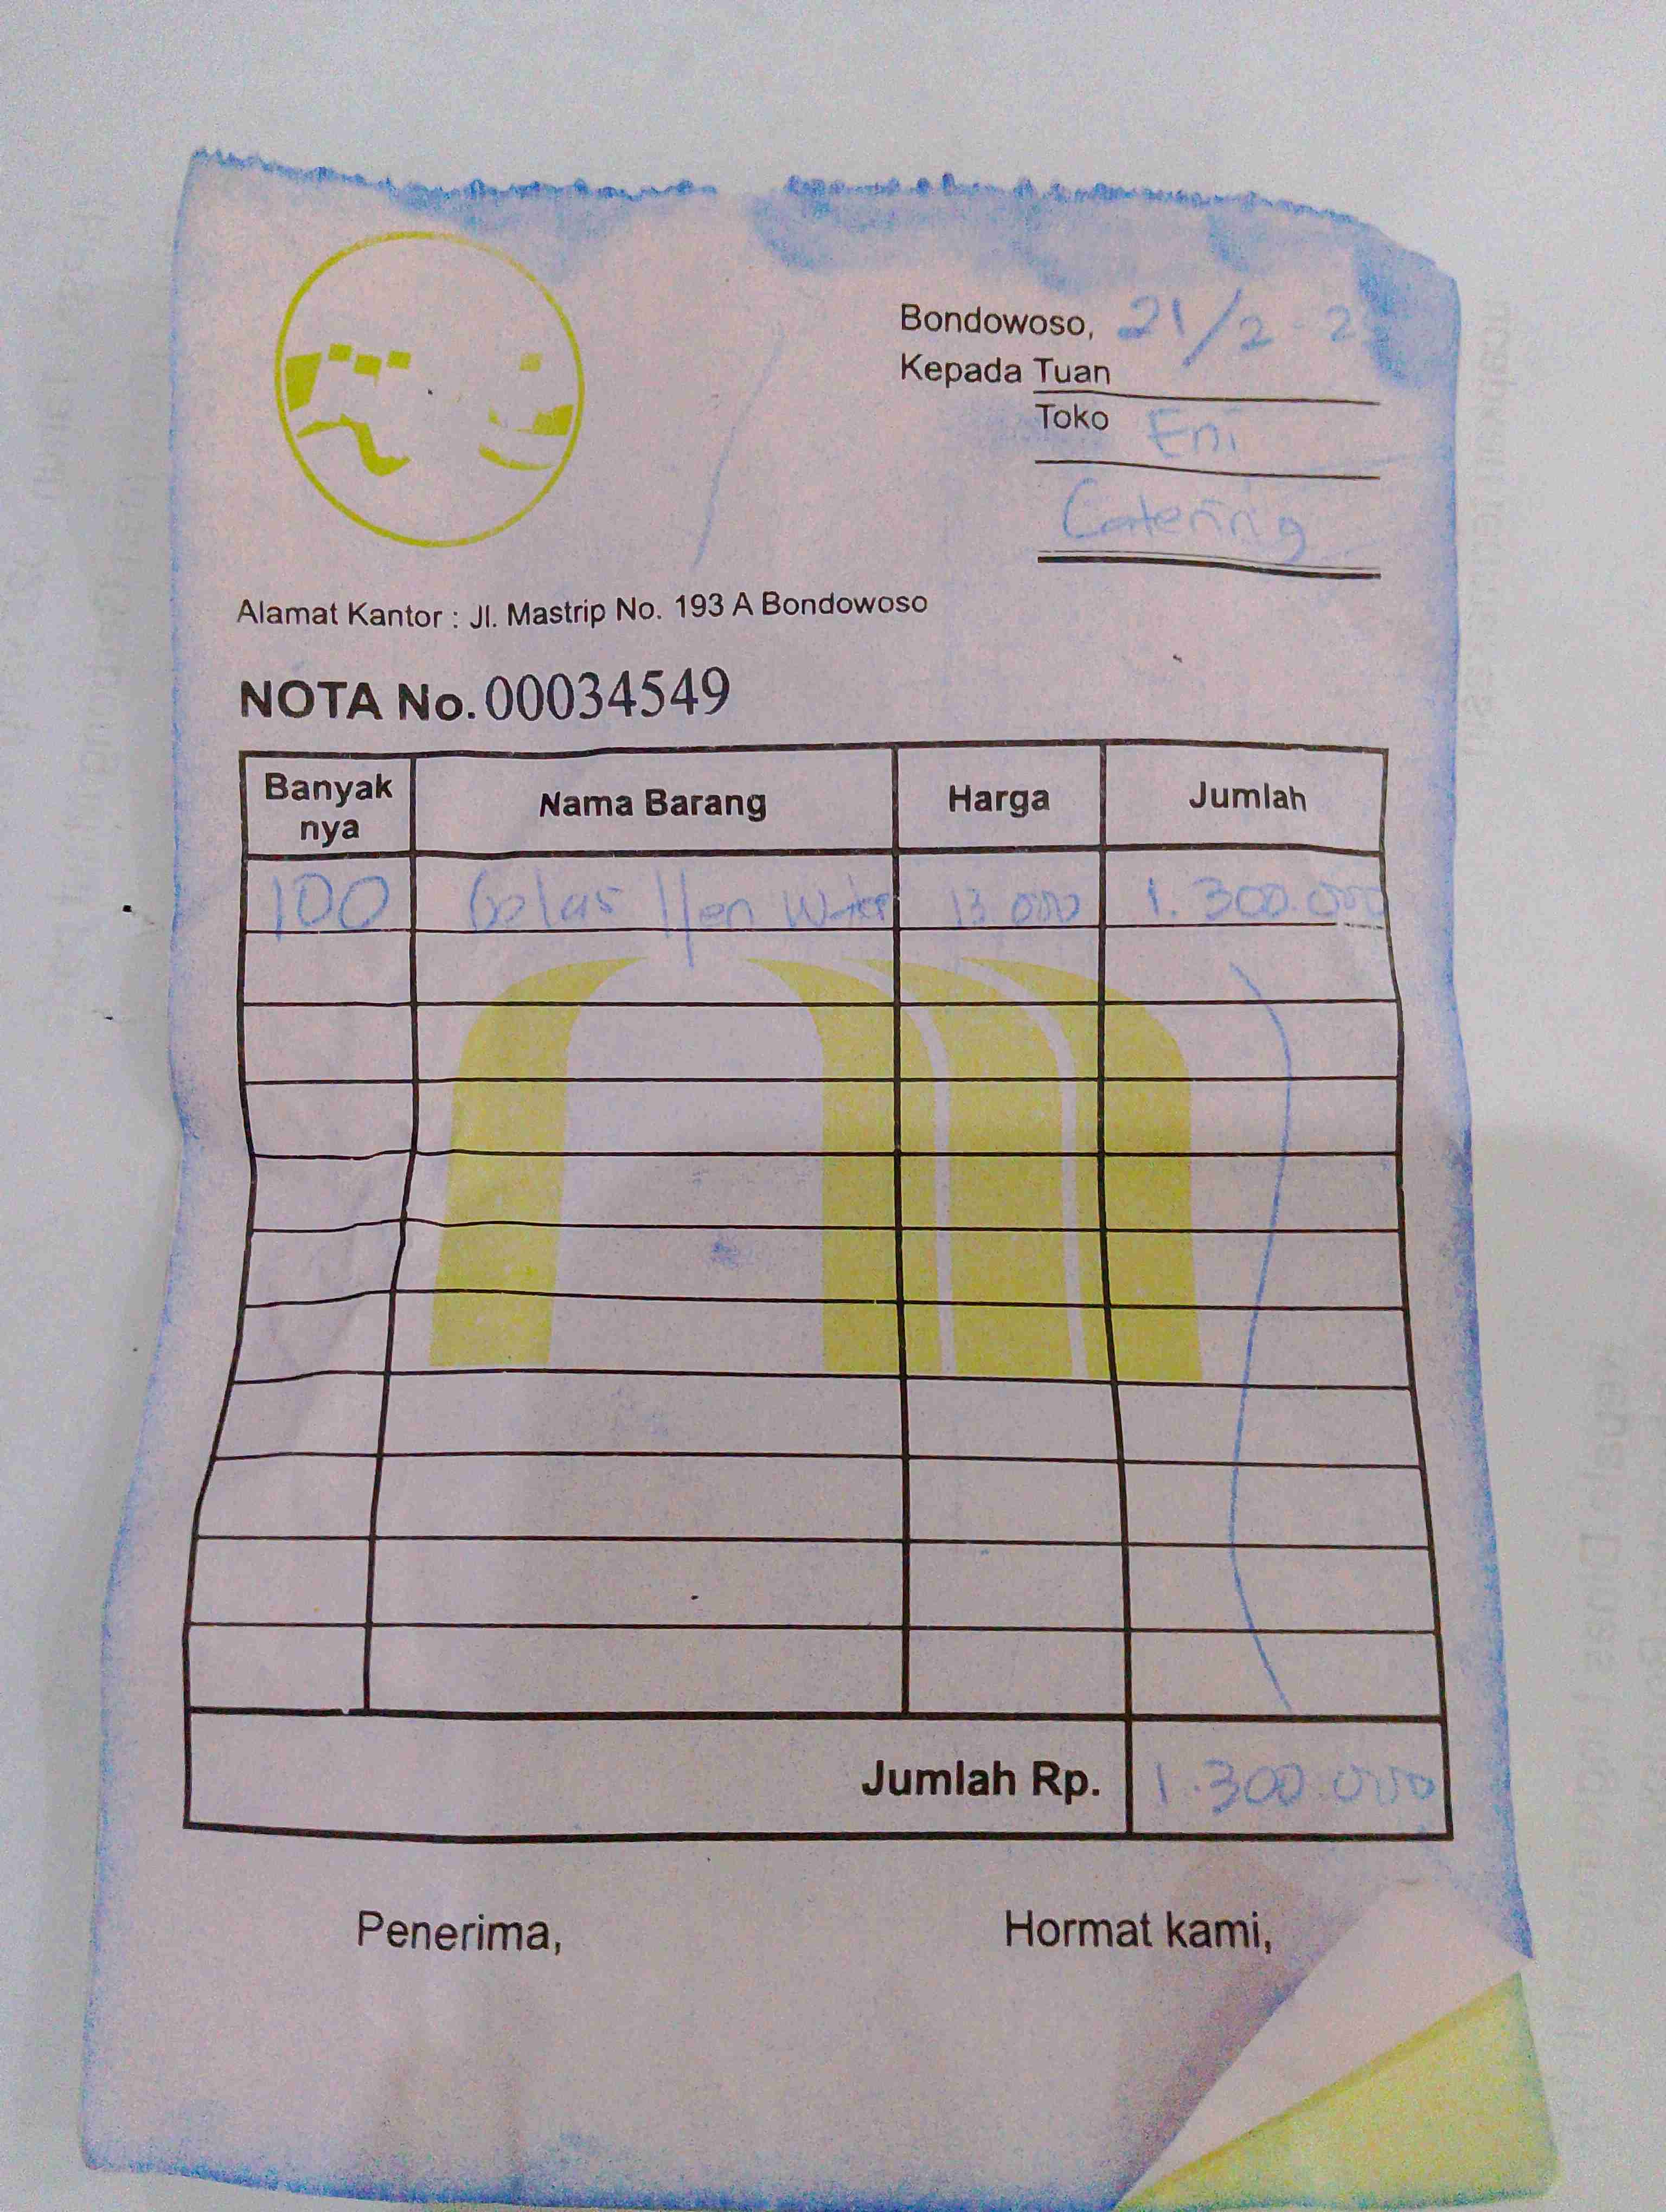 Bondowoso, 21/2 - 2
Kepada Tuan
Toko Eni
Catering
Alamat Kantor : Jl. Mastrip No. 193 A Bondowoso
NOTA No. 00034549
Banyak nya Nama Barang Harga Jumlah
100 Gelas 13.000 1.300.000
Jumlah Rp. 1.300.000
Penerima, Hormat kami,